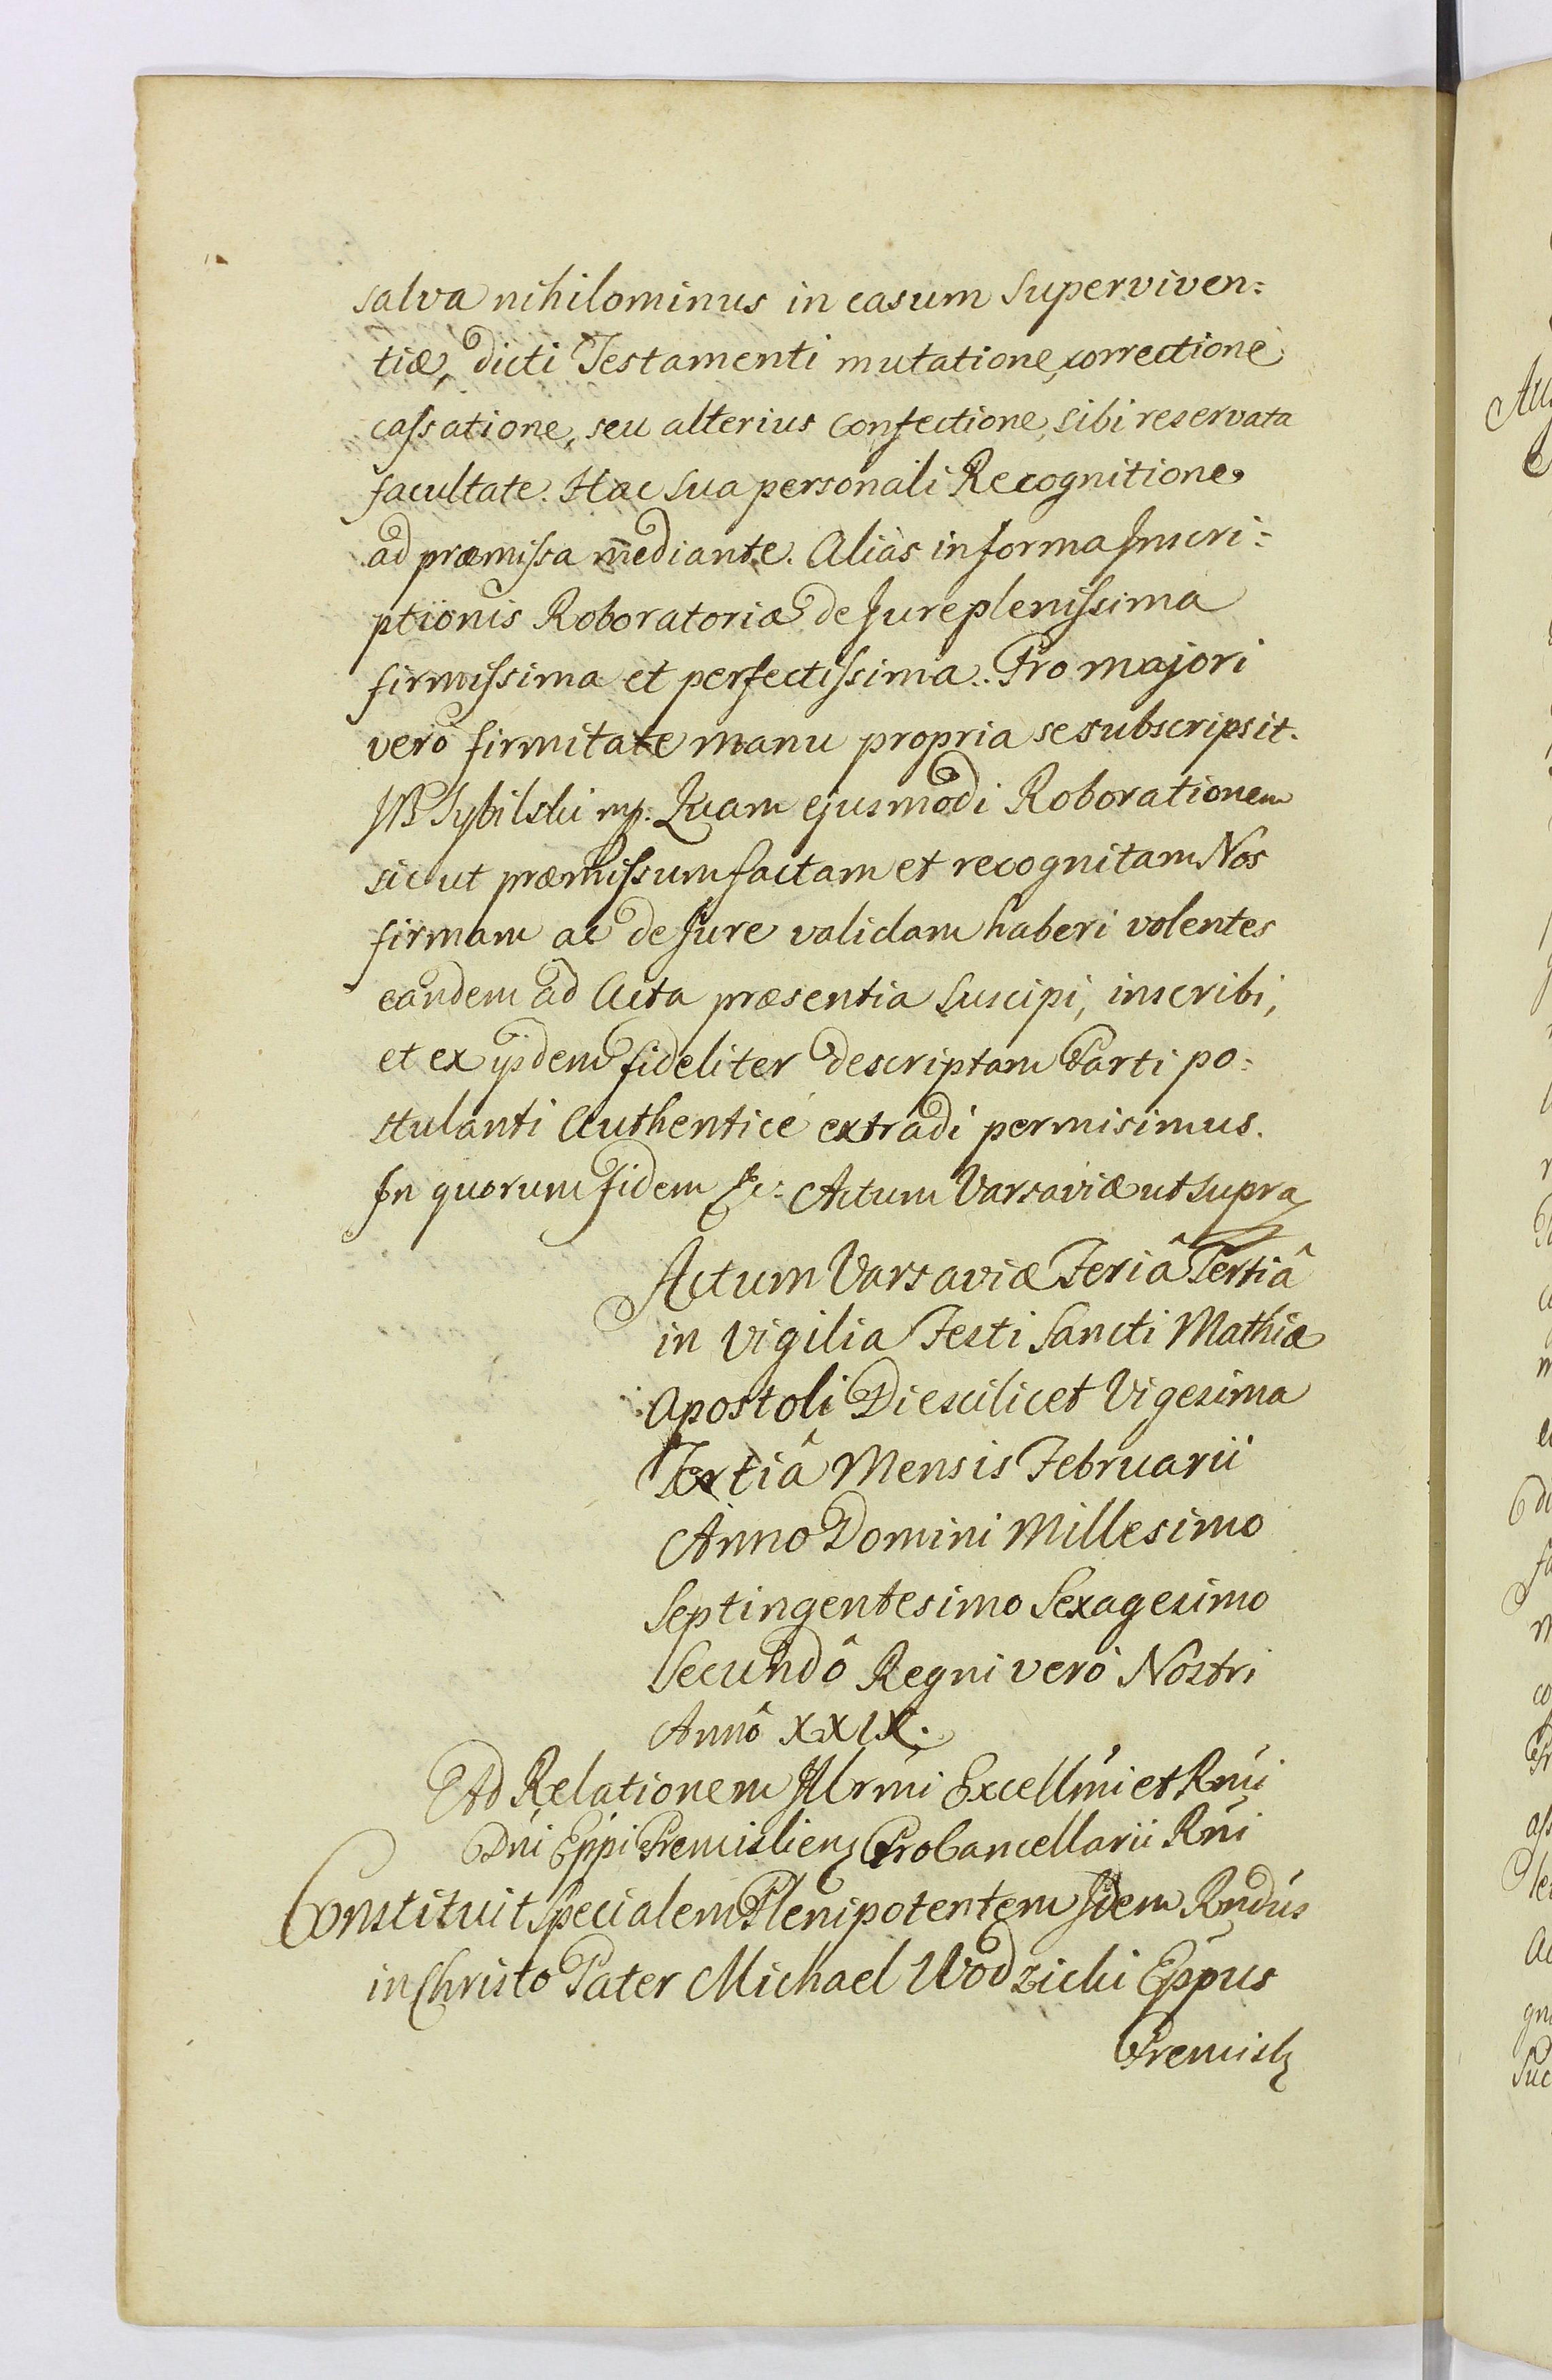 salva nihilominus in casum superviven:
tiæ, dicti Testamenti mutatione, correctione
caſsatione, seu alterius Confectione, sibi reservata
facultate. Hac sua personali Recognitione
ad præmiſsa mediante. Aliàs in forma Inscri:
ptionis Roboratoriæ de Jure pleniſsima
firmiſsima et perfectiſsima. Pro majori
verò firmitate manu propria se subscripsit.
Sybilski mp. Quam ejusmodi Roborationem
sic ut præmiſsum factam et recognitam Nos
firmam ac de Jure validam haberi volentes
eandem ad Acta præsentia suscipi, inscribi,
et ex ijsdem fideliter descriptam Parti po:
stulanti Authenticè extradi permisimus.
In quorum fidem &c: Actum Varsaviæ ut supra
Actum Varsaviæ Feriâ Tertiâ
in Vigilia Festi Sancti Mathiæ
Apostoli Die scilicet Vigesima
Tertiâ Mensis Februarii
Anno Domini Millesimo
Septingentesimo Sexagesimo
Secundô Regni verò Nostri
Annô XXIX.
Ad Relationem Illrmi Excellmi et Rmi
Dni Eppi Premisliens ProCancellarii Rni
Constituit Specialem Plenipotentem Idem Rndus
in Christo Pater Michael Wodzicki Eppus
Premisl